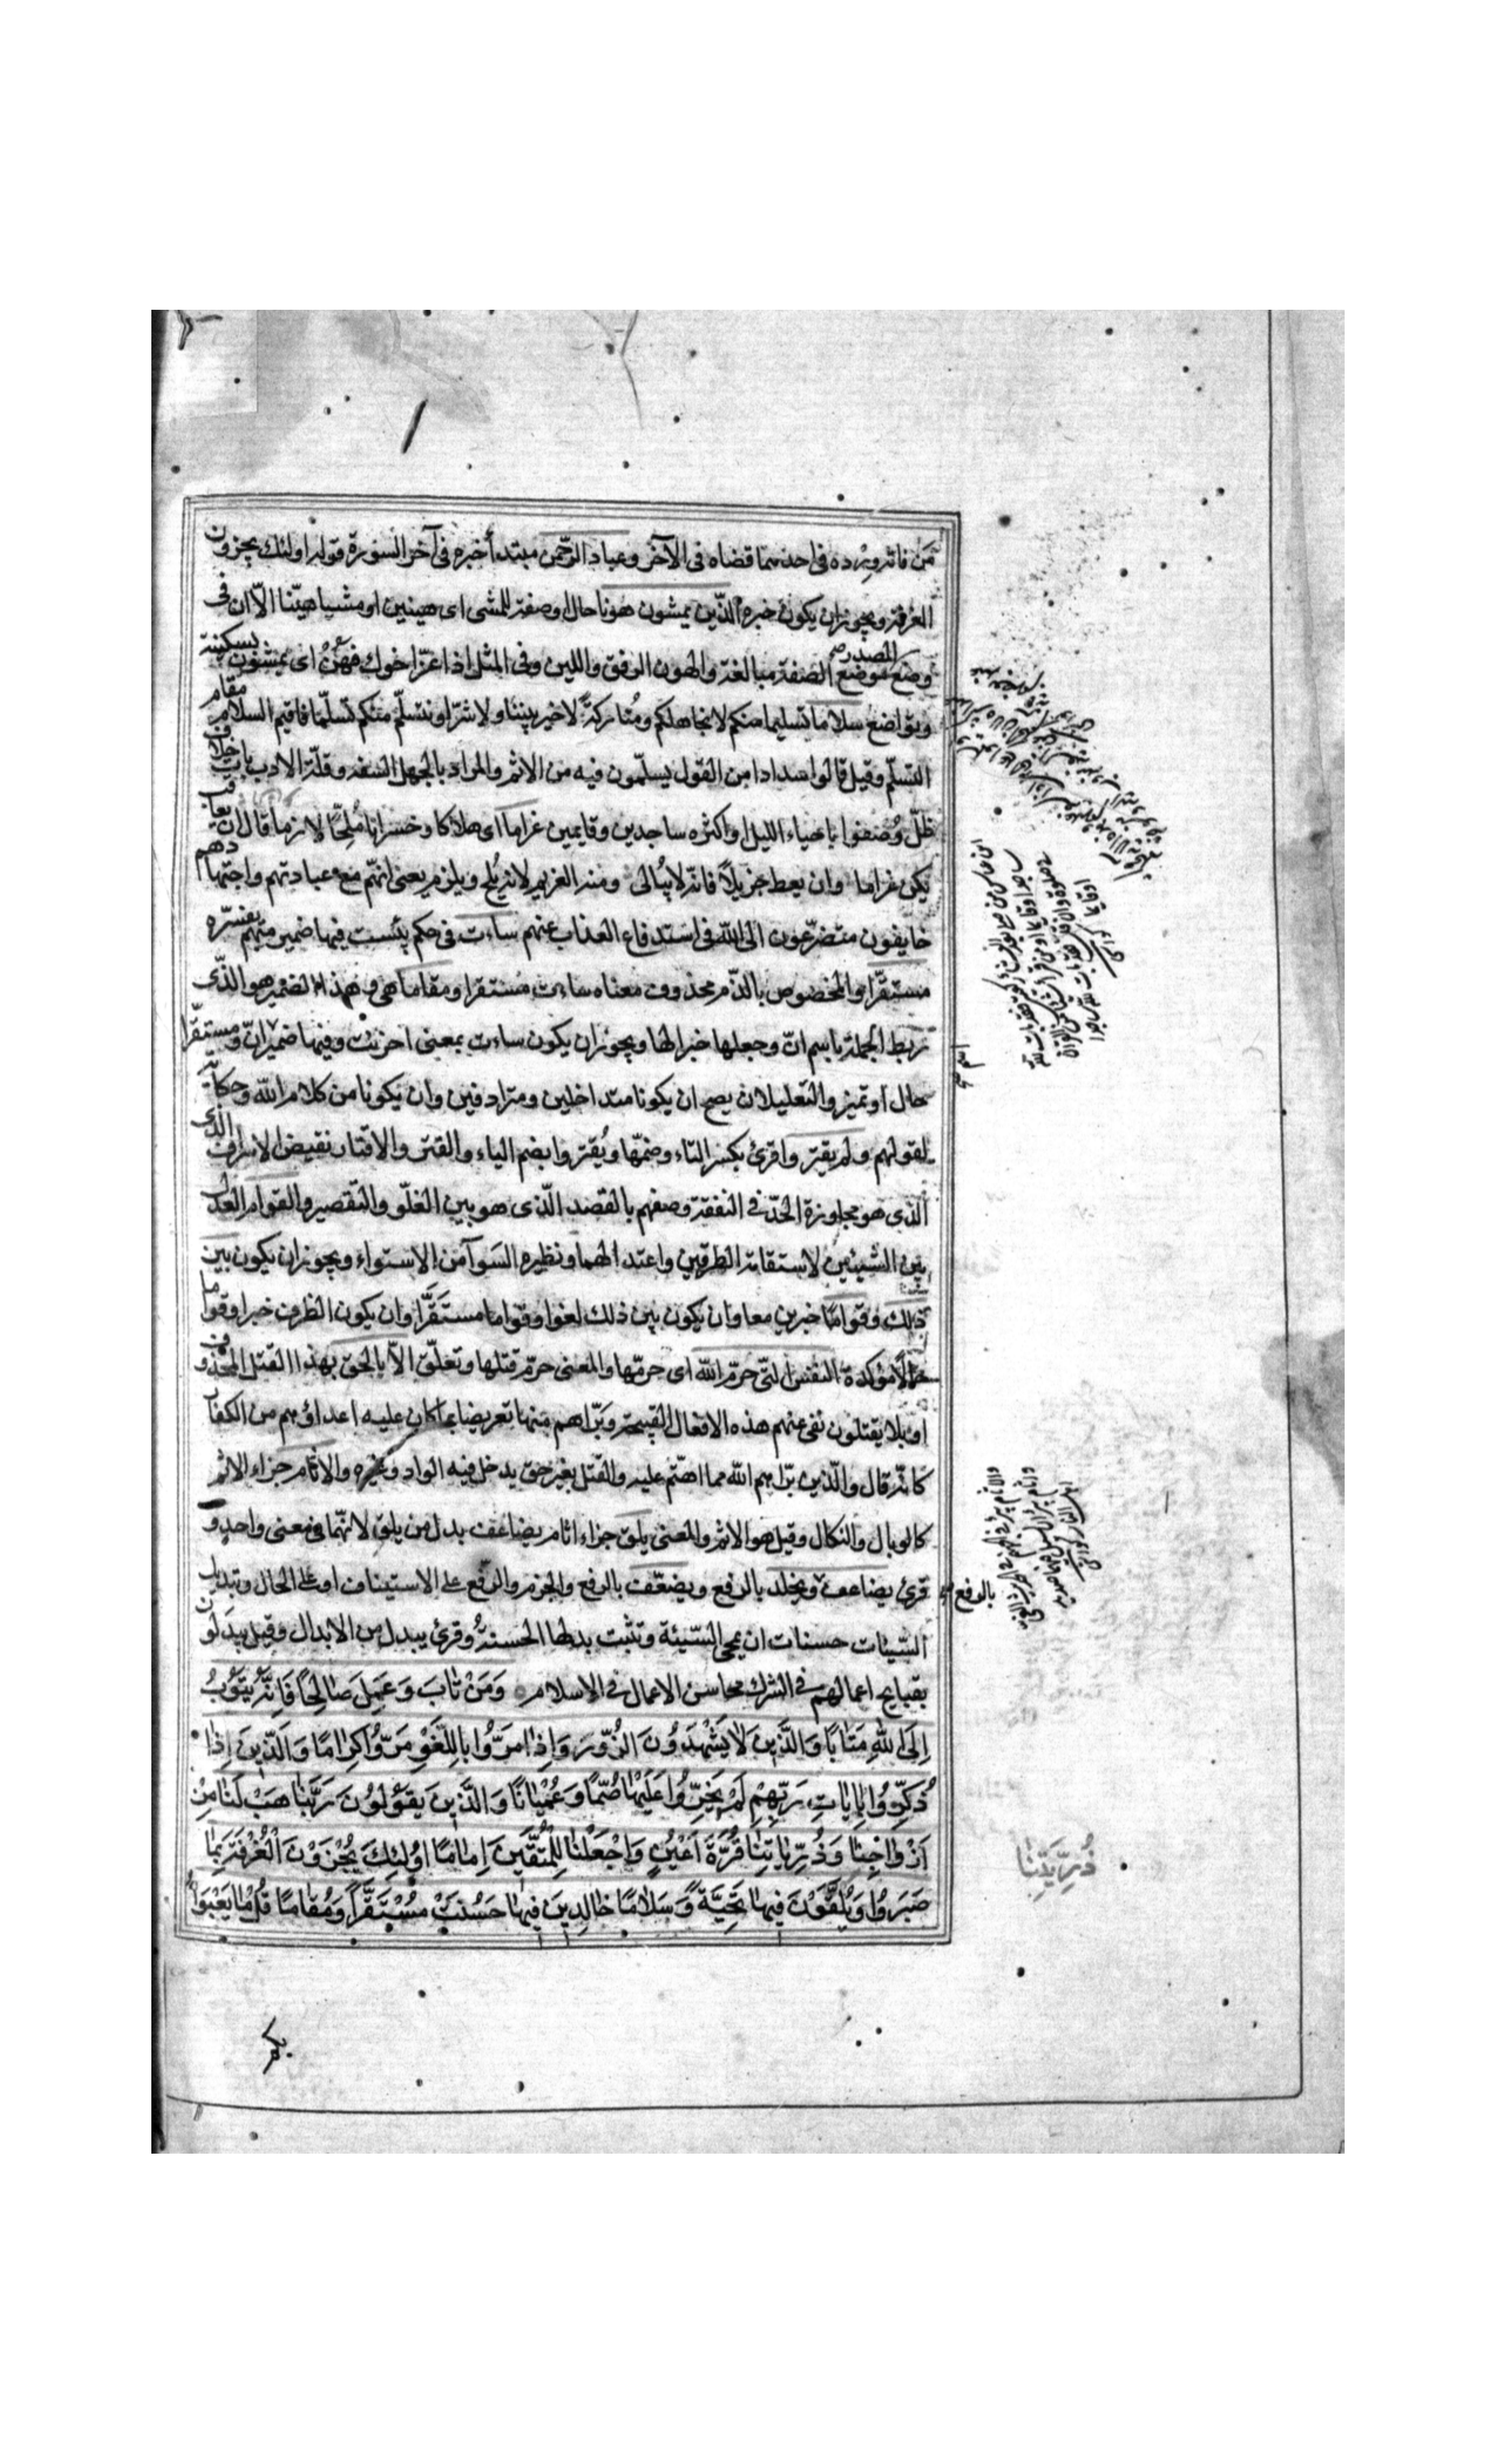 من فاته ورده فى احدهما قضاه فى الآخر وعباد الرّحمن مبتدأ خبره فى آخر السّورة قوله اولئك يجزون
الغرفة ويجوز ان يكون خبره الّذين يمشون هونا حال او صفة للمشى اى هينين او مشيا هيّنا الّا ان فى
وضع المصدر موضع الصّفة مبالغة والهون الرفق واللين وفى المثل اذا عزّ اخوك فهُن اى يمشون بسكينة
وتواضع سلاما تسليما منكم لا نجاهلكم ومُتاركةً لا خير بيننا ولا شرّ او نتسلّم منكم تسلّما فاقيم السلام مقام
التسلّم وقيل قالوا سدادا من القول يسلمون فيه من الاثم والمراد بالجهل السفه وقلّة الادب بات خلاف
ظلّ وُصفوا باحياء الليل او اكثره ساجدين وقايمين غراما اى هلاكا وخسرانا مُلحّا لازما قال ان يعاقب
يكن غراما وان يعط جزيلًا فانّه لا يُبالى ومنه الغريم لانه يُلح ويلزم يعنى انّهم مع عبادتهم واجتهادهم
خايفون متضرّعون الى اللّه فى استدفاع العذاب عنهم ساءت فى حكم بئست فيها ضمير مبهم يفسّره
مستقرّا والمخصوص بالذّم محذوف معناه ساءت مستقرا ومقاما هى وهذا الضمير هو الذّى
ربط الجملة باسم انّ وجعلها خبرا لها ويجوز ان يكون ساءت بمعنى احزنت وفيها ضمير انّ ومستقرّا
حال او تميز والتعليلان يصح ان يكونا متداخلين ومترادفين وان يكونا من كلام اللّه وحكاية
لقولهم ولم يقتروا قرئ بكسر التاء وضمّها ويُقتروا بضم الياء والقتر والاقتار نقيض الاسراف الذى
الّذى هو مجاوزة الحّد فى النفقة وصفهم بالقصد الّذى هو بين الغلّو والتّقصير والقوام العدل
بين الشيئين لاستقامة الطرفين واعتدالهما ونظيره السّوآء من الاستواء ويجوز ان يكون بين
ذلك وقوامًا خبرين معا وان يكون بين ذلك لغوا وقواما مستقرّا وان يكون الظرف خبرا وقواما
حالًا مؤكدة النفس الّتى حرّم اللّه اى حرّمها والمعنى حرّم قتلها وتعلّق الّا بالحق بهذا القتل المحذوف
او بلا يقتلون نفى عنهم هذه الافعال القبيحة وبرّاهم منها تعريضا بما كان عليه اعداؤهم من الكفار
كانّه قال والّذين برّاهم اللّه مما انتم عليه والقتل بغير حق يدخل فيه الواد وغيره والاثام جزاء الاثم
كالوبال والنكال وقيل هو الاثم والمعنى يلق جزاء اثام يضاعف بدل من يلق لانّهما فى معنى واحد و
قرئ يضاعف ويخلد بالرفع ويضعّف بالرفع والجزم والرفع على الاستيناف او على الحال وتبديل
بالرفع
السّيئات حسنات ان يمحى السّيئة وتثبت بدلها الحسنةُ وقرئ يبدل من الابدال وقيل يبدلون
بقبايح اعمالهم فى الشرك محاسن الاعمال فى الاسلام وَمَنْ تٰابَ وَعَمِلَ صَالِحًا فَاِنَّهُ يَتُوبُ
اِلَى اللّٰهِ مَتَابًا وَالَّذِينَ لَا يَشْهَدُونَ الزُّورَ وَاِذَا مَرُّوا بِاللَّغْوِ مَرُّوا كِرَامًا وَالَّذِينَ اِذَا
ذُكِّرُوا بِاٰيَاتِ رَبِّهِمْ لَمْ يَخِرُّوا عَلَيْهَا صُمًّا وَعُمْيَانًا وَالَّذِينَ يَقُولُونَ رَبَّنَا هَبْ لَنَا مِنْ
اَزْوَاجِنَا وَذُرِّيَاتِنَا قُرَّةَ اَعْيُنٍ وَاجْعَلْنَا لِلْمُتَّقِينَ اِمَامًا اُولٰئِكَ يُجْزَوْنَ الْغُرْفَةَ بِمَا
ذُرِّيَّتِنَا
صَبَرُوا وَيُلَقَّوْنَ فِيهَا تَحِيَّةً وَسَلَامًا خَالِدِينَ فِيهَا حَسُنَتْ مُسْتَقَرًّا وَمُقَامًا قُلْ مَا يَعْبَؤُا
بكم